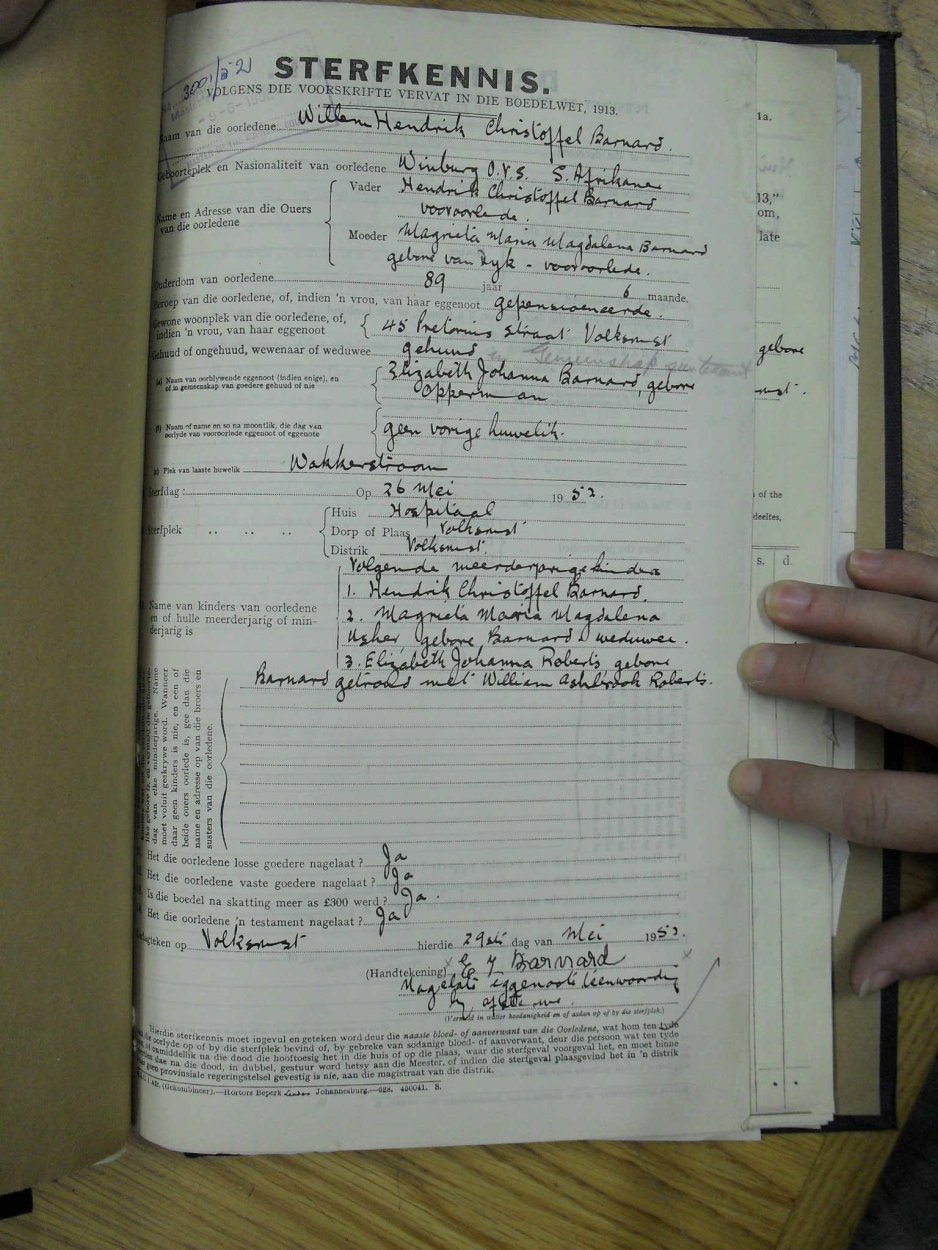 3001/52
STERFKENNIS.
VOLGENS DIE VOORSKRIFTE VERVAT IN DIE BOEDELWET, 1913.
Naam van die oorledene Willem Hendrik Christoffel Barnard.
Geboorteplek en Nasionaliteit van oorledene Winburg O.V.S. S. Afrikane
Name en Adresse van die Ouers van die oorledene
Vader Hendrik Christoffel Barnard
vooroorlede.
Moeder Magrieta Maria Magdalena Barnard
gebore van Dyk - vooroorlede.
Ouderdom van oorledene 89 jaar 6 maande.
Beroep van die oorledene, of, indien 'n vrou, van haar eggenoot gepensioeneerde.
Gewone woonplek van die oorledene, of, indien 'n vrou, van haar eggenoot 45 Pretorius straat Volksrust
Gehuud of ongehuud, wewenaar of weduwee gehuud in Gemeenskap
(a) Naam van oorblywende eggenoot (indien enige), en of in gemeenskap van goedere gehuud of nie
Elizabeth Johanna Barnard, gebore
Opperman
(b) Naam of name en so na moontlik, die dag van oorlyde van vooroorlede eggenoot of eggenote
geen vorige huwelik.
(c) Plek van laaste huwelik Wakkerstroom
Sterfdag: Op 26 Mei 1952.
Sterfplek .. .. ..
Huis Hospitaal
Dorp of Plaas Volksrust
Distrik Volksrust.
Name van kinders van oorledene en of hulle meerderjarig of minderjarig is
Volgende meerderjarige kinders
1. Hendrik Christoffel Barnard.
2. Magrieta Maria Magdalena
Usher gebore Barnard weduwee.
3. Elizabeth Johanna Roberts gebore
Barnard getroud met William Ashbrook Roberts.
dag van elke minderjarige. Name
moet voluit geskrywe word. Wanneer
daar geen kinders is nie, en een of
beide ouers oorlede is, gee dan die
name en adresse op van die broers en
susters van die oorledene.
Het die oorledene losse goedere nagelaat? Ja
Het die oorledene vaste goedere nagelaat? Ja
Is die boedel na skatting meer as £300 werd? Ja.
Het die oorledene 'n testament nagelaat? Ja
op Volksrust hierdie 29ste dag van Mei 1952.
(Handtekening) E J Barnard
Nagelate eggenoote teenwoordig
by afsterwe.
(Vermeld in watter hoedanigheid en of aldan op of by die sterfplek.)
Hierdie sterfkennis moet ingevul en geteken word deur die naaste bloed- of aanverwant van die Oorledene, wat hom ten tyde
oorlyde op of by die sterfplek bevind of, by gebreke van sodanige bloed- of aanverwant, deur die persoon wat ten tyde
onmiddellik na die dood die hooftoesig het in die huis of op die plaas, waar die sterfgeval voorgeval het, en moet binne
dae na die dood, in dubbel, gestuur word hetsy aan die Meester, of indien die sterfgeval plaasgevind het in 'n distrik
geen provinsiale regeringstelsel gevestig is nie, aan die magistraat van die distrik.
Afr. (Gekombineer).—Hortors Beperk Johannesburg.—628. 450041. S.
1a.
13,"
om,
late
gebore
of the
deeltes,
s. d.